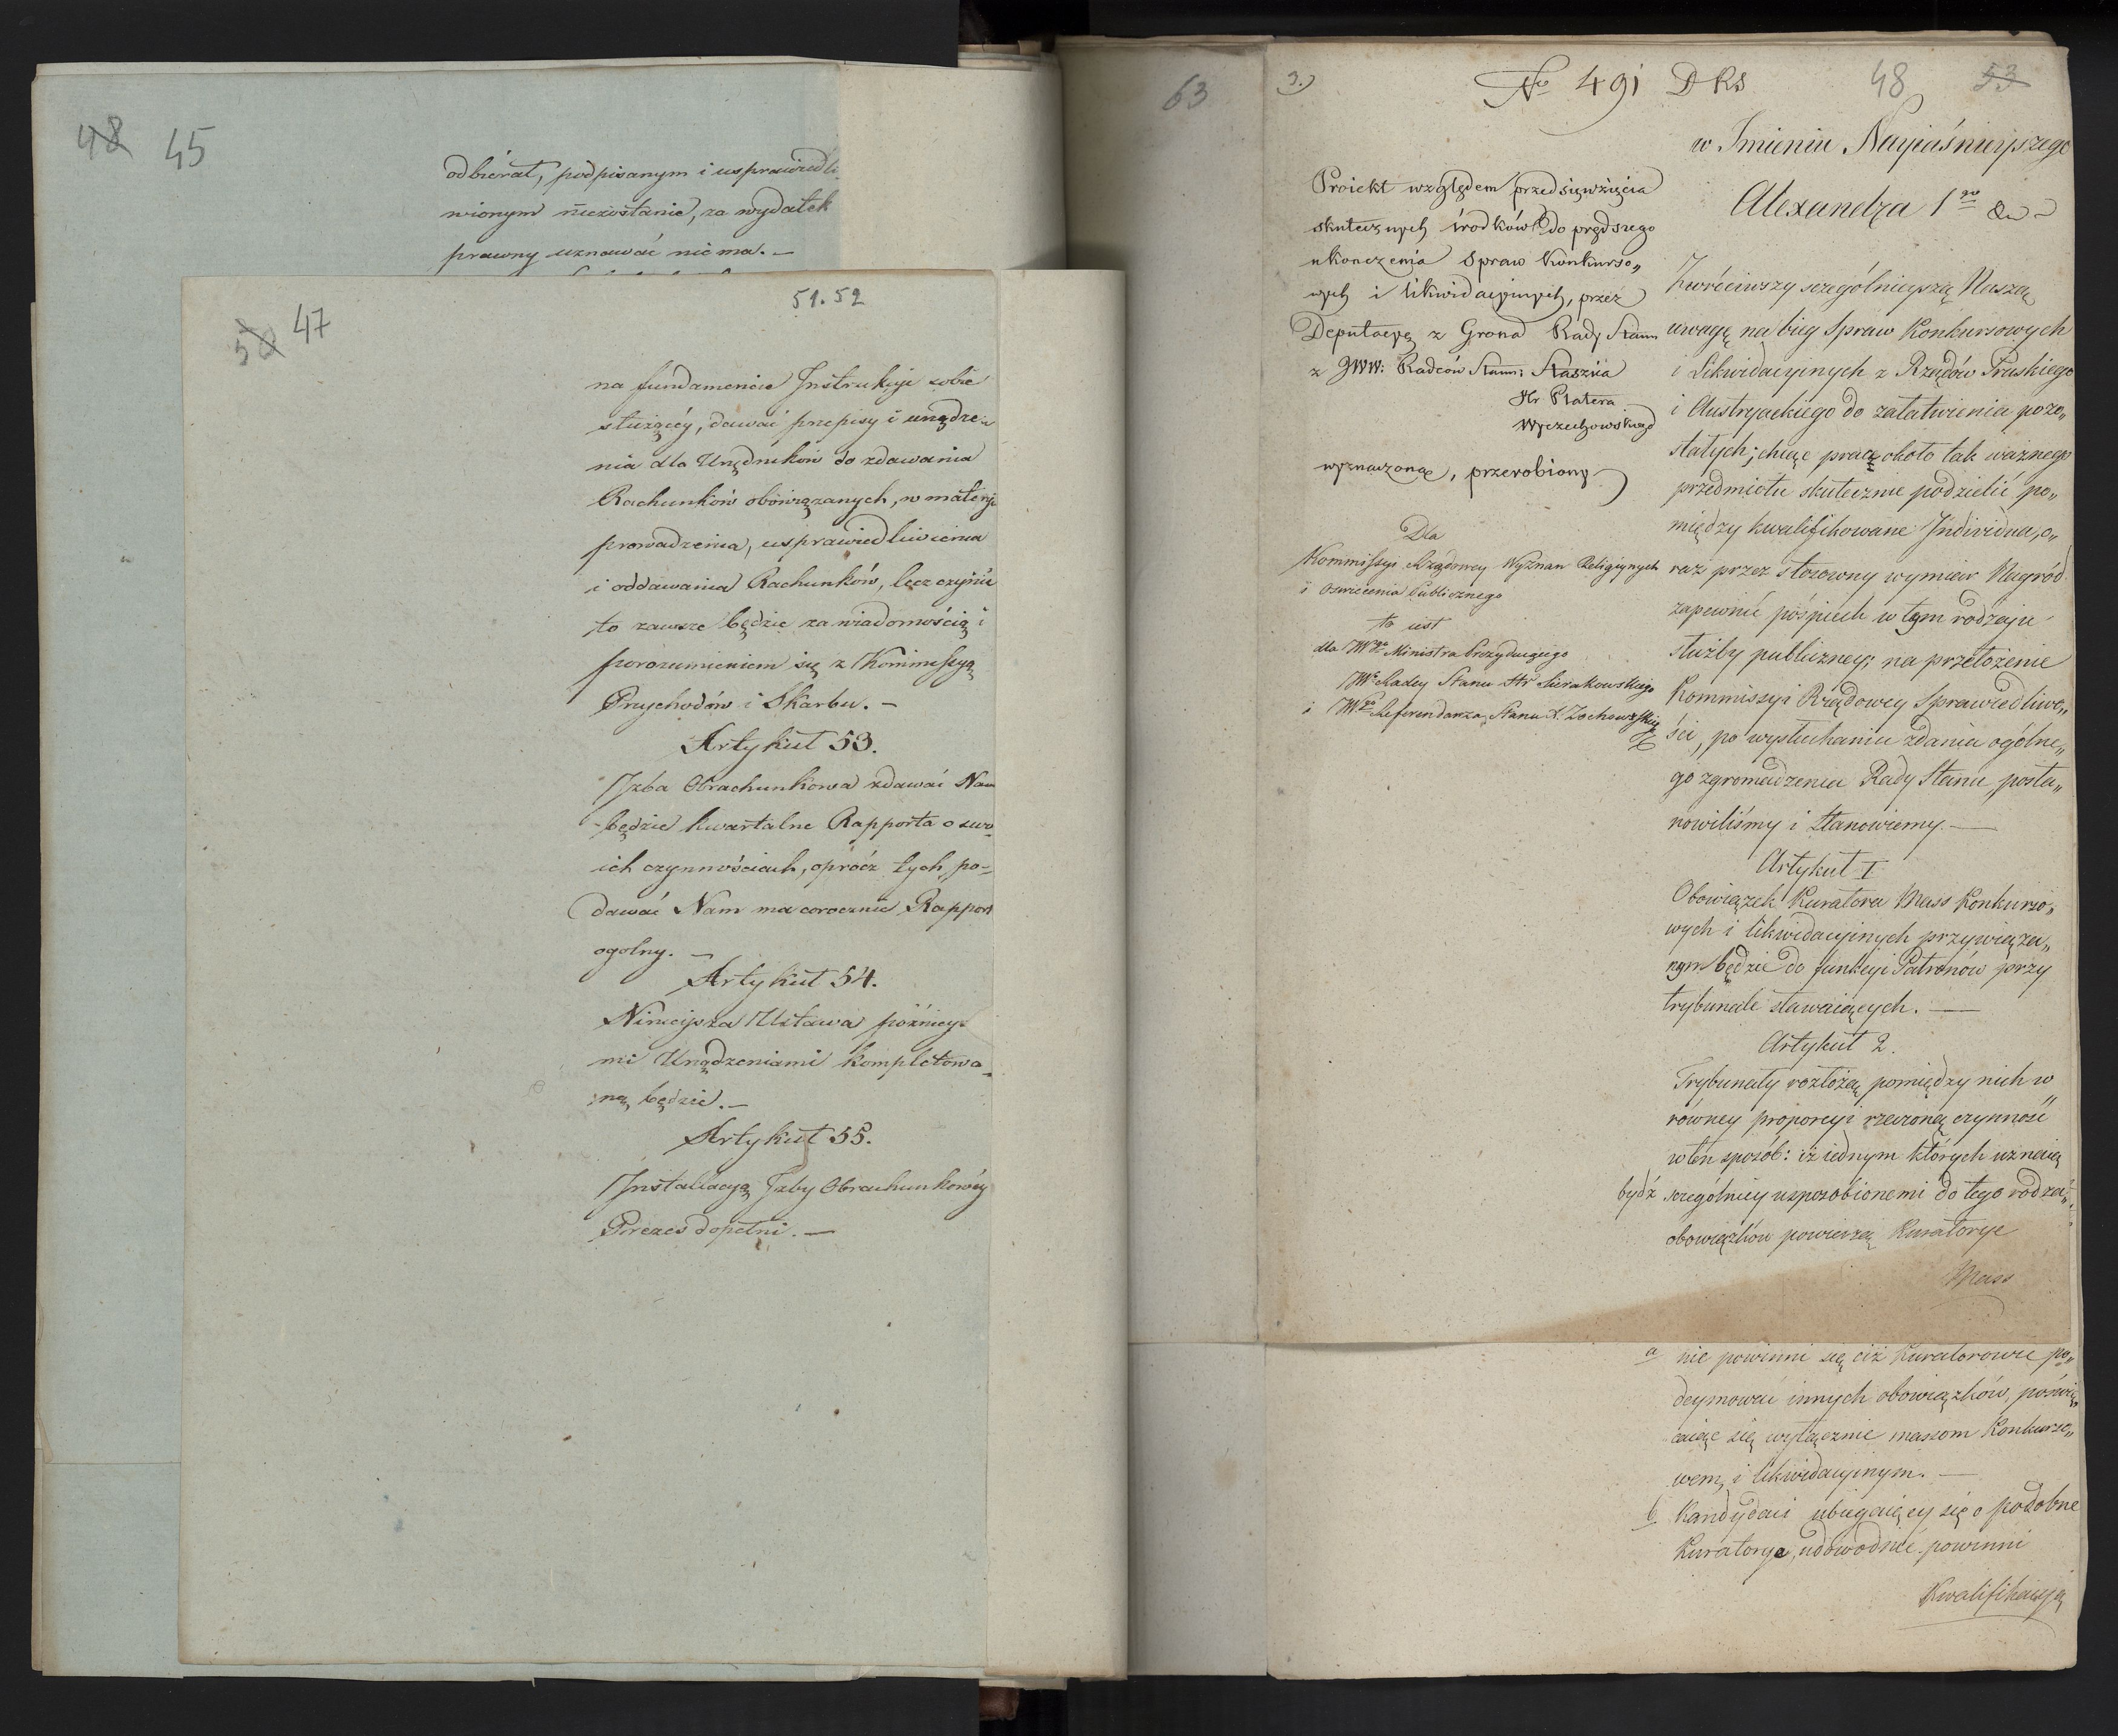 48 45
odbierał, podpisanym i usprawiedli-
wionym niezostanie, za wydatek
prawny uznawać nie ma. —
50 47
51. 52
na fundamencie Instrukcji sobie
służącéy, dawać przepisy i urządze-
nia dla Urzędników do zdawania
Rachunków obowiązanych, w materji
prowadzenia, usprawiedliwienia
i oddawania Rachunków, lecz czynić
to zawsze będzie za wiadomością i
porozumieniem się z Kommissyą
Przychodów i Skarbu. —
Artykuł 53.
Izba Obrachunkowa zdawać Nam
będzie kwartalne Rapporta o swo-
ich czynnościach, oprócz tych, po-
dawać Nam ma corocznie Rapport
ogolny. —
Artykuł 54.
Ninieysza Ustawa poźniey-
mi Urządzeniami kompletowa-
ną będzie. —
Artykuł 55.
Installacyą Izby Obrachunkowéy
Prezes dopełni. —
63
3.) No 491 D R S 48 53
w Imieniu Nayiaśnieyszego
Alexandra 1go &
Proiekt względem przedsięwzięcia
skutecznych środków do prędszego
ukończenia Spraw Konkurso„
wych i likwidacyinych, przez
Deputacyę z Grona Rady Stanu
z JWW: Radców Stanu: Staszica
Hr Platera
Wyczechowskiego
wyznaczoną, przerobiony
Dla
Kommissyi Rządowey Wyznan Religiynych
i Oswiecenia Publicznego
to iest
dla JWgo Ministra Prezyduiącego
JWo Radcy Stanu Hr Sierakowskiego
i JWgo Referendarza Stanu X. Zochowskiego
Zwróciwszy szczególnieyszą Naszą
uwagę na bieg Spraw Konkursowych
i Likwidacyinych z Rządów Pruskiego
i Austryackiego do załatwienia pozo„
stałych; chcąc pracę około tak ważnego
przedmiotu skutecznie podzielić po„
między kwalifikowane Individua, o„
raz przez stosowny wymiar Nagród
zapewnić pośpiech w tym rodzaju
służby publiczney; na przełożenie
Kommissyi Rządowey Sprawiedliwo„
ści, po wysłuchaniu zdania ogólne„
go zgromadzenia Rady Stanu posta„
nowiliśmy i Stanowiemy. —
Artykuł I
Obowiązek Kuratora Mass Konkurso„
wych i likwidacyinych przywiąza„
nym będzie do funkcyi Patronów przy
trybunale stawaiących. —
Artykuł 2.
Trybunały rozłożą pomiędzy nich w
równey proporcyi rzeczoną czynność
w ten sposób: iż iednym których uznaią
bydź szczególniey usposobionemi do tego rodzaiu
obowiązków powierzą Kuratorye
Mass
a nie powinni się ciż Kuratorowie po„
deymować innych obowiązków, poświę„
caiąc się wyłącznie massom Konkurso„
wem, i likwidacyinym. —
b Kandydaci ubiegaiący się o podobne
Kuratorye, udowodnić powinni
Kwalifikacyą